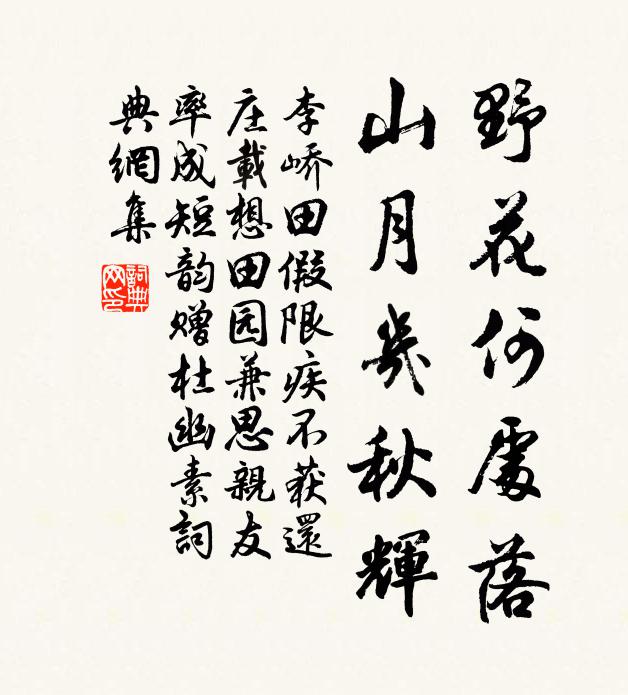 野花何處落
山月幾秋輝
李嶠田假限疾不获還
庄載想田园兼思親友
率成短韵赠杜幽素詞
典網集
詞典
网印